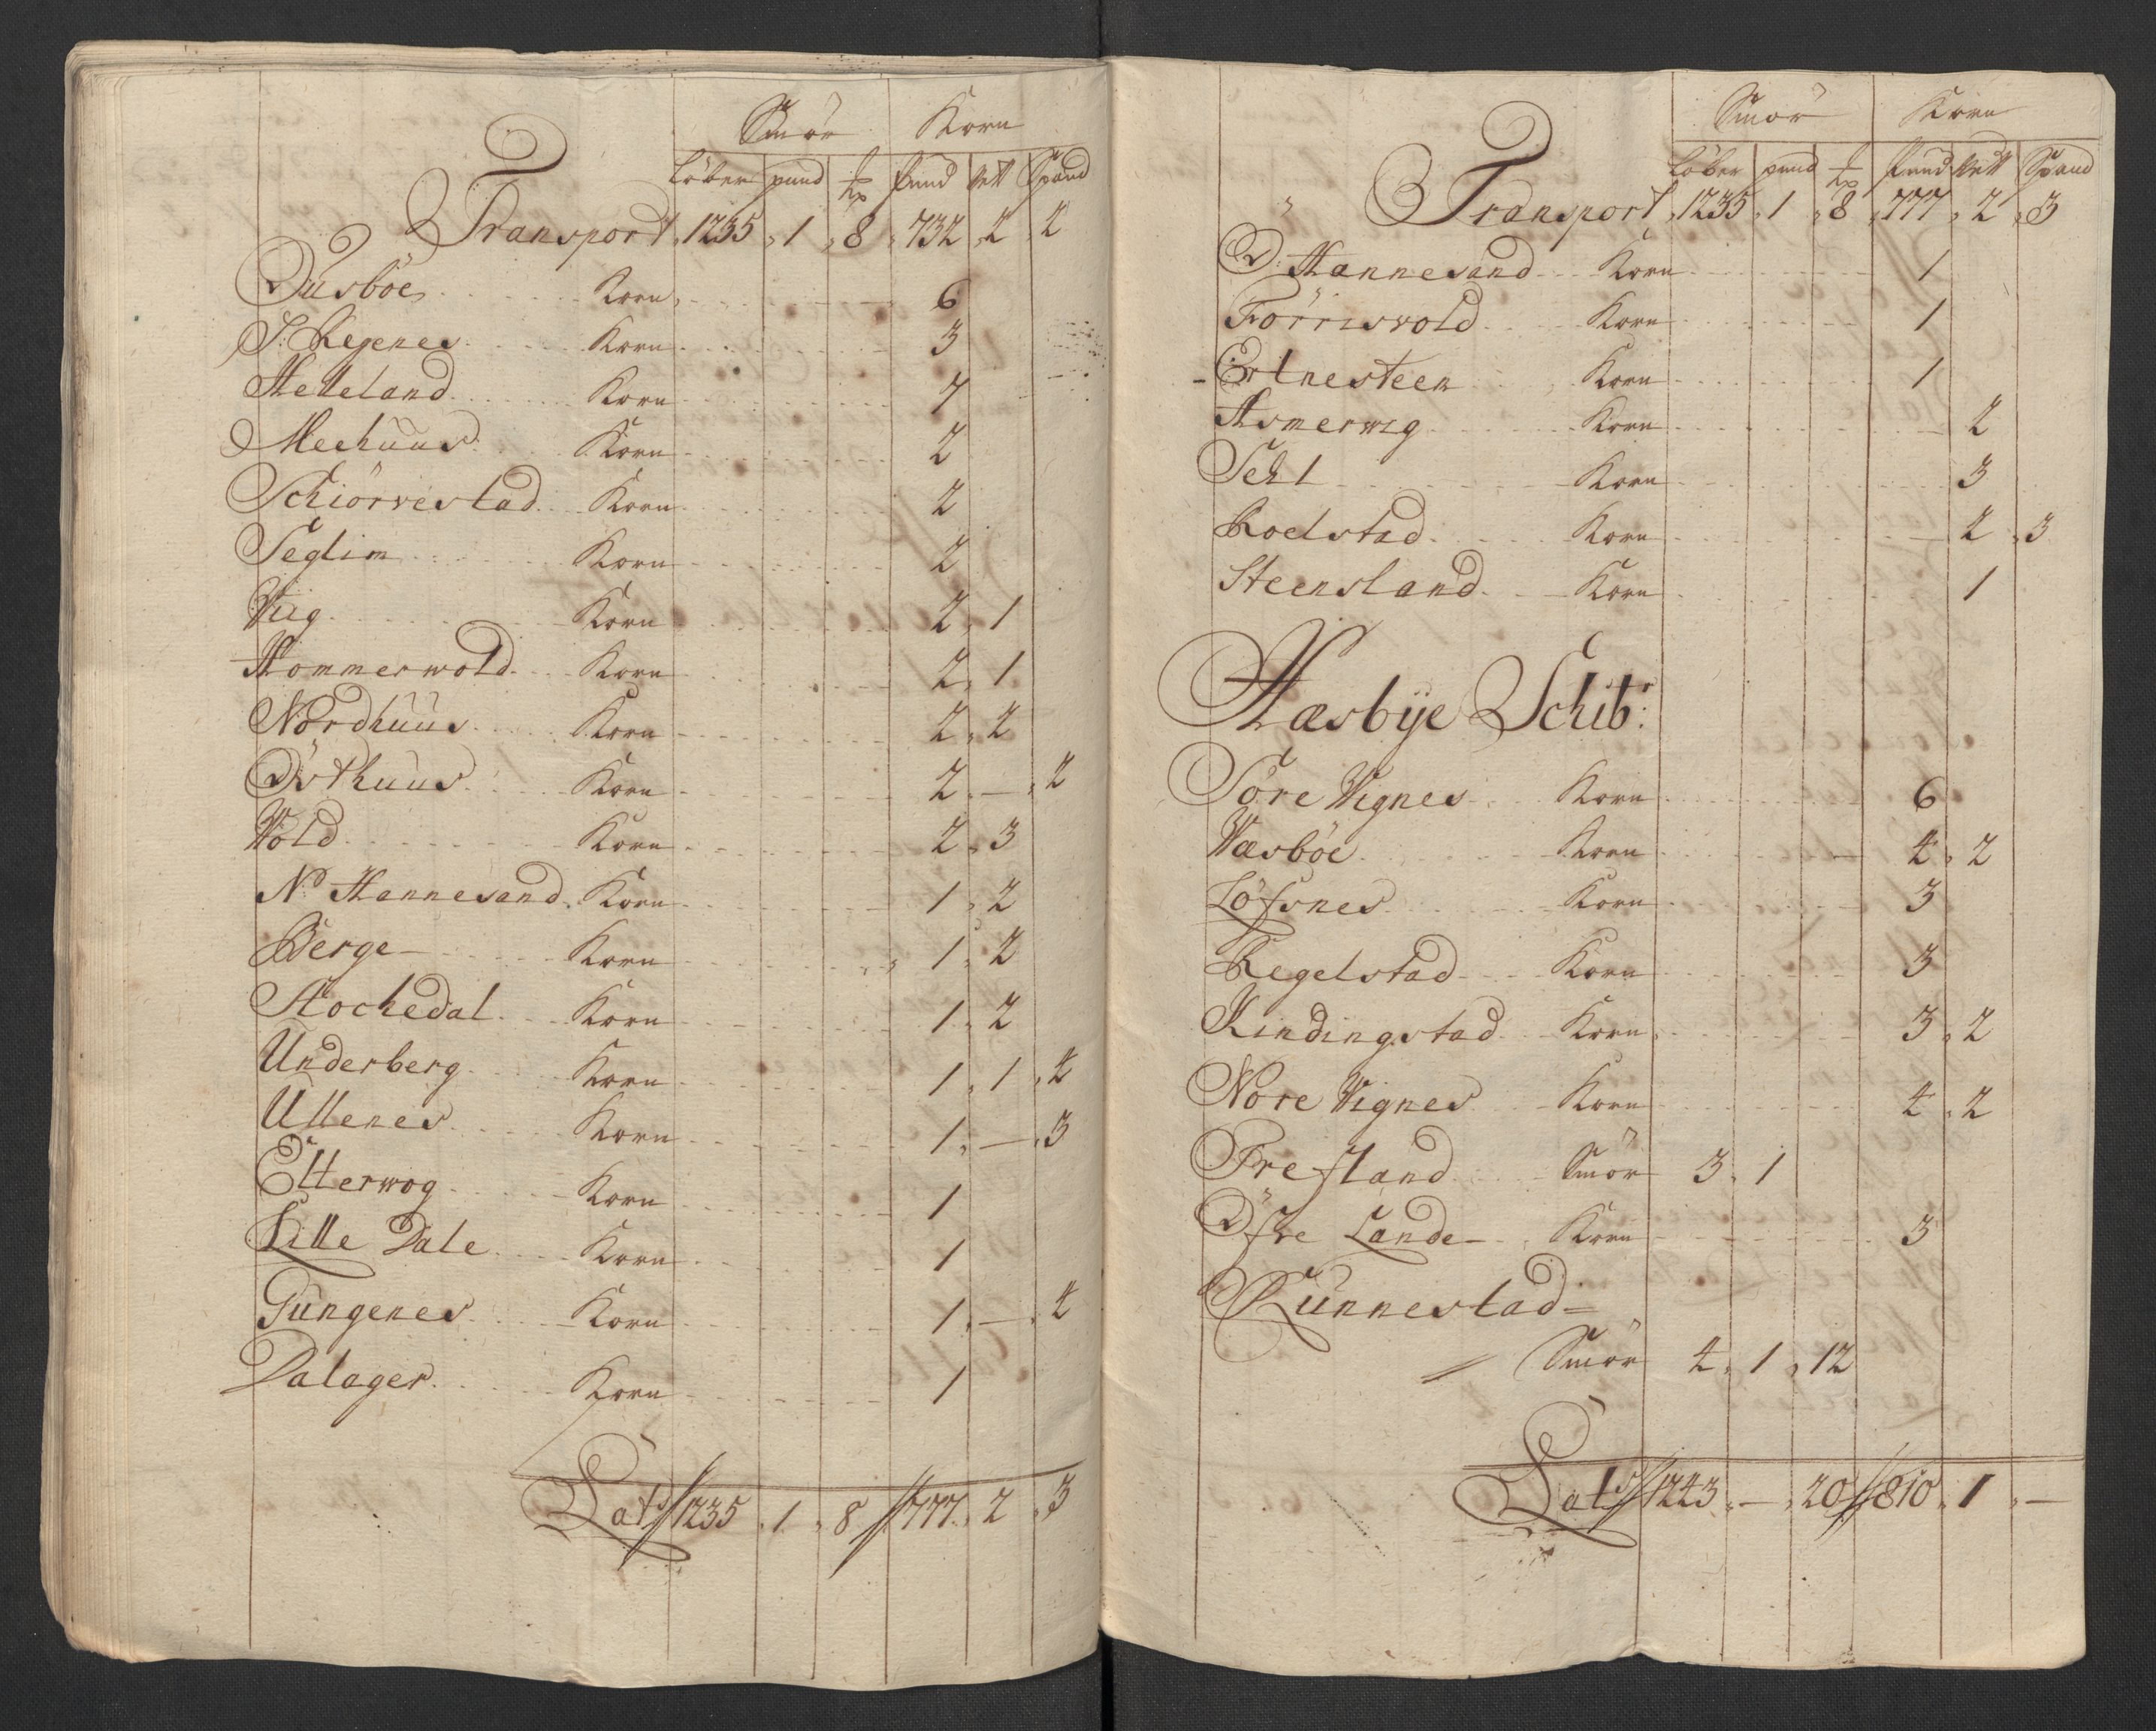 Smör Korn
Löber pund ℔ Pund Vett Spand
Transport 1235 1 8 732 2 2
Dusböe Korn 6
S: Regenes Korn 3
Helleland Korn 7
Meehuus Korn 2
Schiörvestad Korn 2
Seglim Korn 2
Viig Korn 2 1
Hommerwold Korn 2 1
Nordhuus Korn 2 2
Östhuus Korn 2 — 2
Wold Korn 2 3
N: Hannesand Korn 1 2
Berge Korn 1 2
Stochedal Korn 1 2
Underberg Korn 1 1 4
Ullenes Korn 1 — 3
Etterwog Korn 1
Lille Dale Korn 1
Gungenes Korn 1 — 4
Dalager Korn 1
Lats 1235 1 8 777 2 3
Smör Korn
Löber pund ℔ Pund Vett Spand
Transport 1235 1 8 777 2 3
Ö: Hannesand Korn 1
Förrisvold Korn 1
Erlnesteen Korn 1
Asmerwig Korn 2
Sehl Korn 3
Roelstad Korn 2 3
Steensland Korn 1
Hæsbye Schib:
Söre Vignes Korn 6
Wæsböe Korn 4 2
Löfsnes Korn 3
Regelstad Korn 3
Kindingstad Korn 3 2
Nore Vignes Korn 4 2
Prestland Smör 3 1
Öfre Lande Korn 3
Runnestad
Smör 4 1 12
Lats 1243 — 20 810 1 —